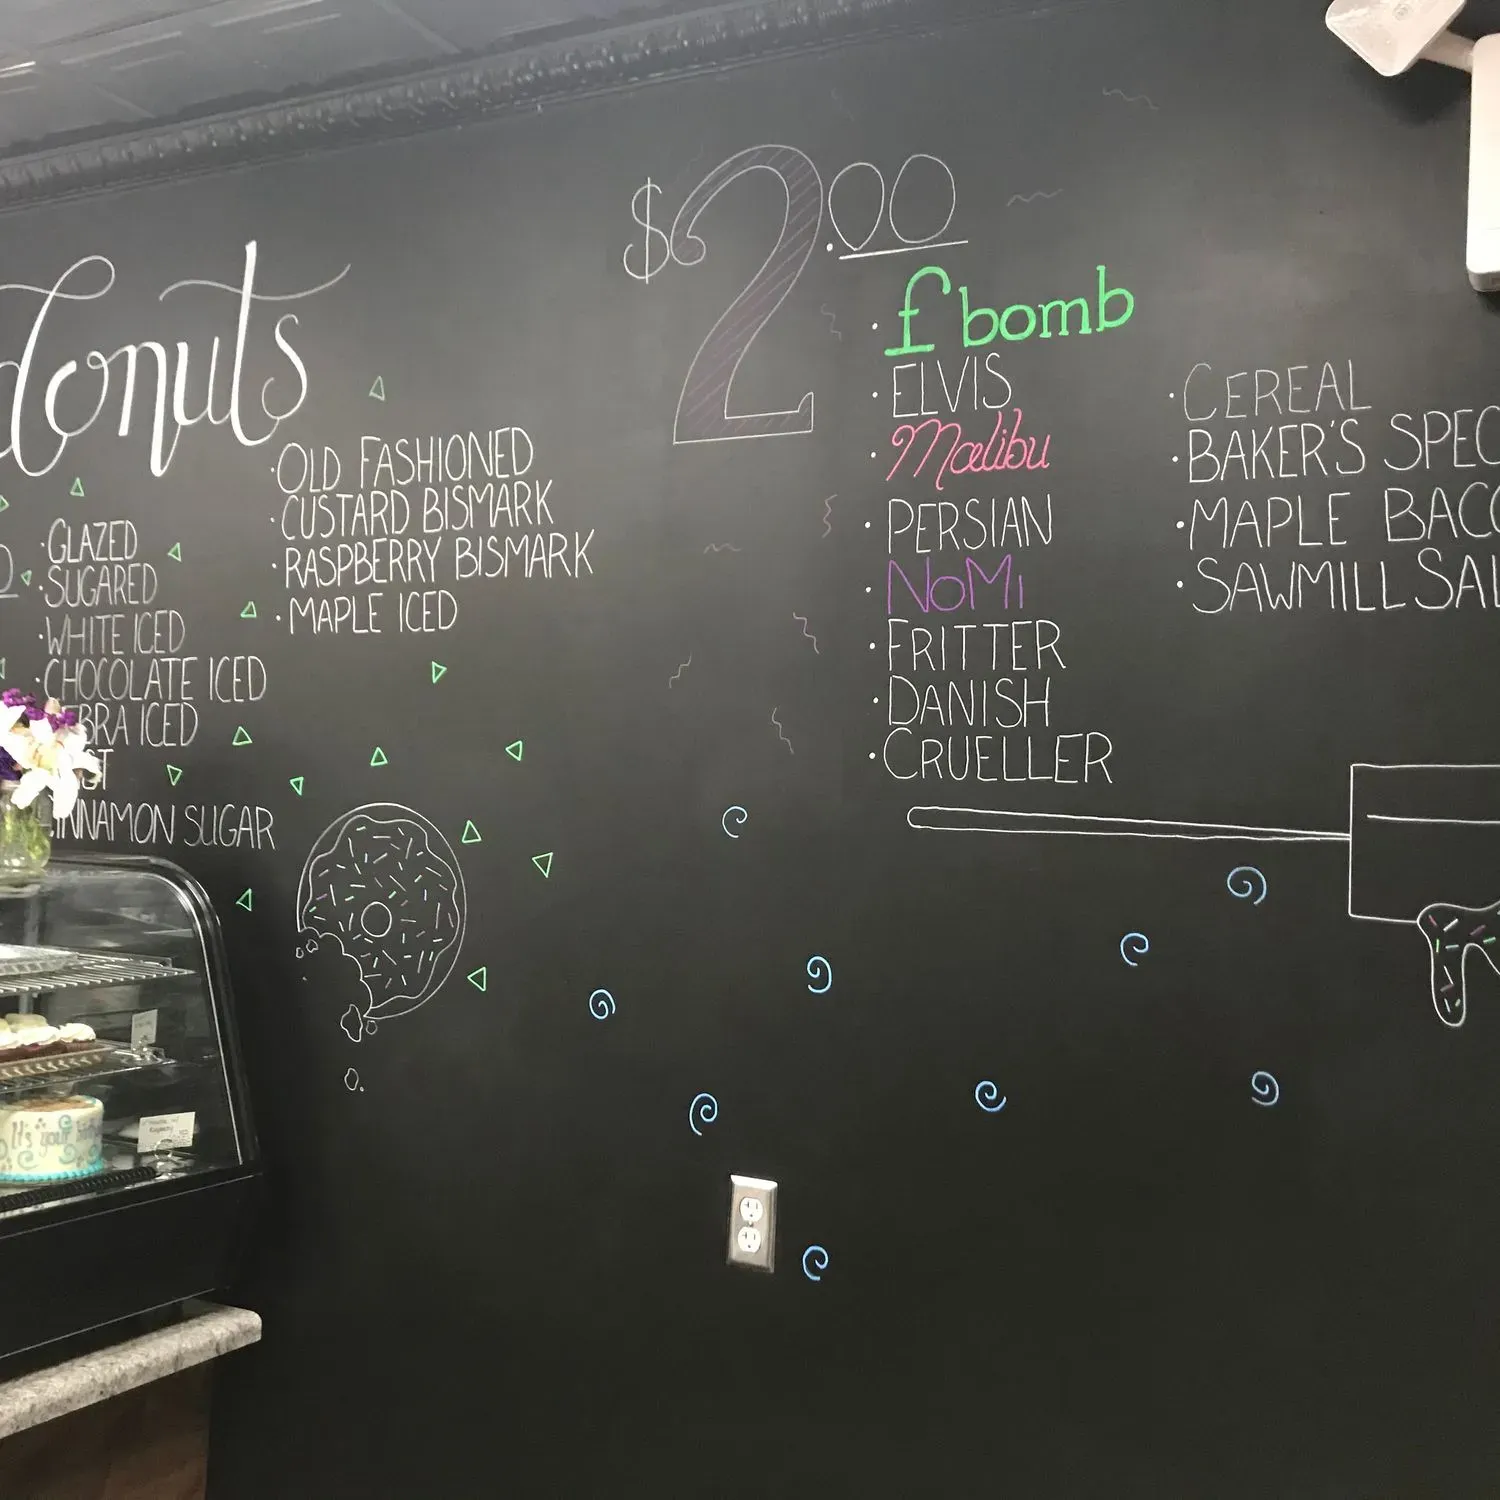 donuts
GLAZED
SUGARED
WHITE ICED
CHOCOLATE ICED
ICED
SUGAR
OLD FASHIONED
CUSTARD BISMARK
RASPBERRY BISMARK
MAPLE ICED
$2.00
f bomb
ELVIS
Malibu
PERSIAN
NoMi
FRITTER
DANISH
CRUELLER
CEREAL
BAKER'S
MAPLE
SAWMILL
It's your